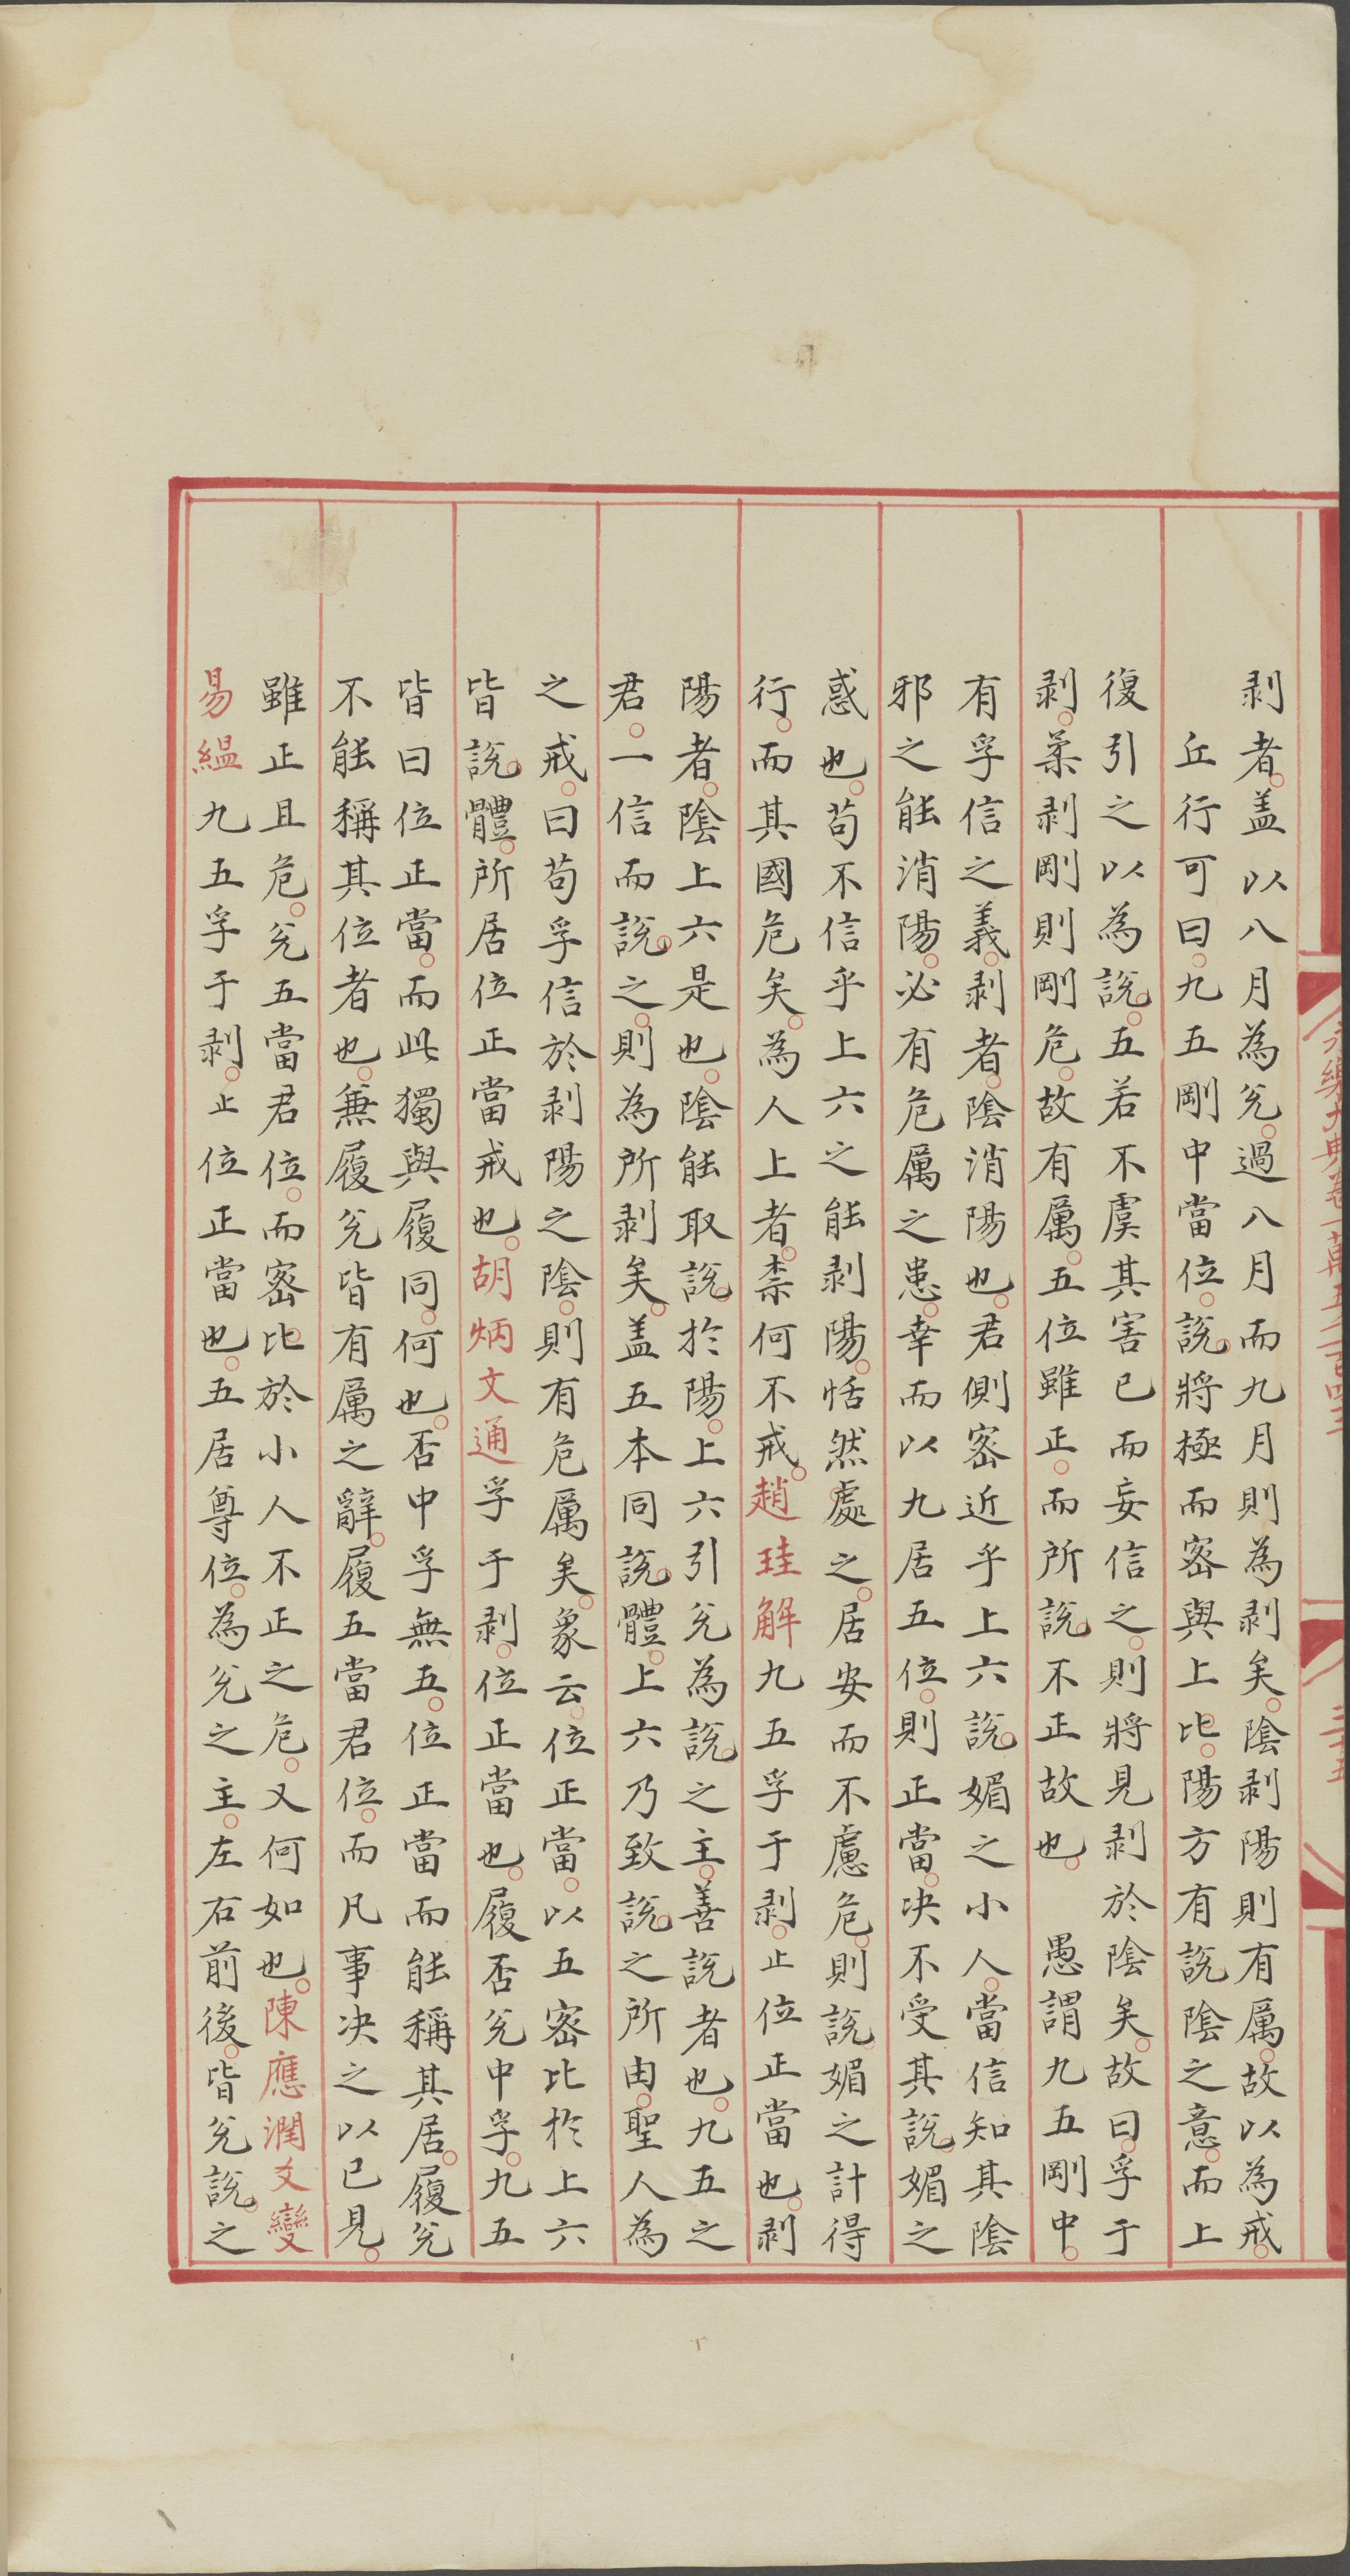 剥者盖以八月為兊過八月而九月則為剥矣陰剥陽則有厲故以為戒
丘行可曰九五剛中當位說將極而密與上比陽方有説陰之意而上
復引之以為說五若不虞其害已而妄信之則將見剥於陰矣故曰孚于
剥柔剥剛則剛危故有厲五位雖正而所説不正故也 愚謂九五剛中
有孚信之義剥者陰消陽也君側密近乎上六說媚之小人當信知其陰
邪之能消陽必有危厲之患幸而以九居五位則正當决不受其說媚之
惑也苟不信乎上六之能剥陽恬然處之居安而不慮危則説媚之計得
行而其國危矣為人上者柰何不戒趙珪解九五孚于剥止位正當也剥
陽者陰上六是也陰能取說於陽上六引兊為説之主善説者也九五之
君一信而說之則為所剥矣盖五本同説體上六乃致說之所由聖人為
之戒曰苟孚信於剥陽之陰則有危厲矣象云位正當以五密比於上六
皆說體所居位正當戒也胡炳文通孚于剥位正當也履否兊中孚九五
皆曰位正當而此獨與履同何也否中孚無五位正當而能稱其居履兊
不能稱其位者也無履兊皆有厲之辭履五當君位而凡事决之以已見
雖正且危兊五當君位而密比於小人不正之危又何如也陳應潤爻變
易緼九五孚于剥止位正當也五居尊位為兊之主左右前後皆兊説之